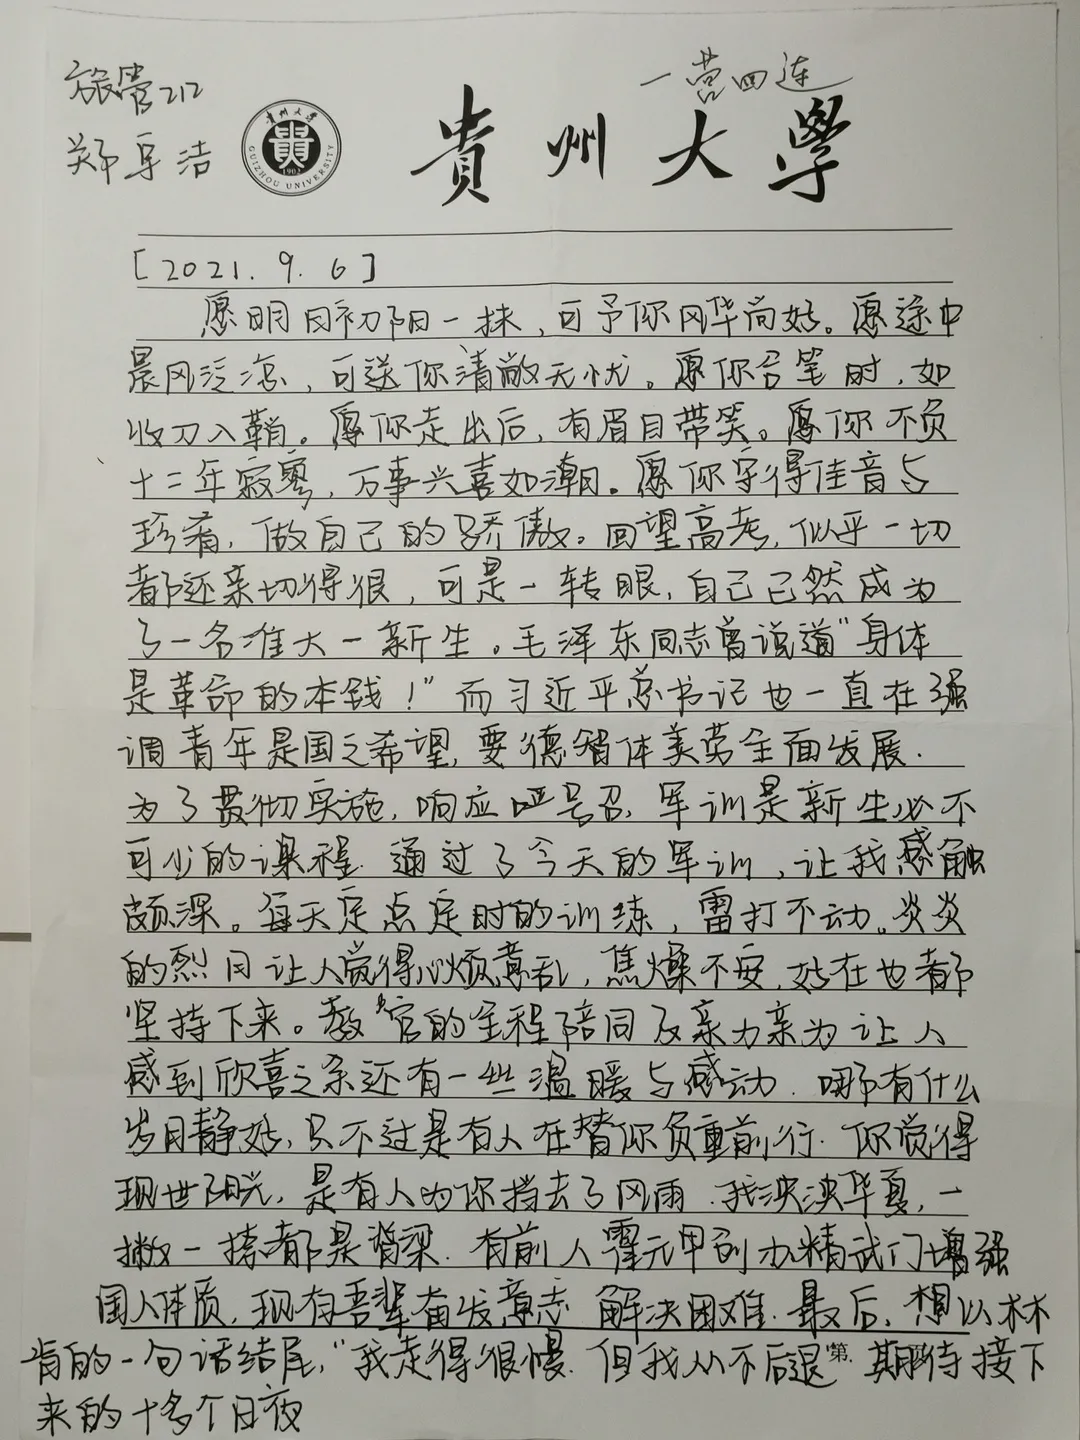 旅管212
一营四连
郑宇洁
貴州大學
貴州大学
貴
1902
GUIZHOU UNIVERSITY
[2021.9.6]
愿明日初阳一抹,可予你风华尚好。愿途中
晨风泛凉,可送你清敞无忧。愿你合笔时,如
收刀入鞘。愿你走出后,有眉目带笑。愿你不负
十二年寂寥,万事兴喜如潮。愿你穿得佳音与
珍馐,做自己的骄傲。回望高考,似乎一切
都还亲切得很,可是一转眼,自己已然成为
了一名准大一新生。毛泽东同志曾说道"身体
是革命的本钱!"而习近平总书记也一直在强
调青年是国之希望,要德智体美劳全面发展.
为了贯彻实施,响应号召,军训是新生必不
可少的课程.通过了今天的军训,让我感触
颇深。每天定点定时的训练,雷打不动。炎炎
的烈日让人觉得心烦意乱,焦燥不安,好在也都
坚持下来。教官的全程陪同及亲力亲为让人
感到欣喜之余还有一丝温暖与感动.哪有什么
岁月静好,只不过是有人在替你负重前行.你觉得
现世阳光,是有人为你挡去了风雨.我泱泱华夏,一
撇一捺都是脊梁.有前人霍元甲创办精武门增强
国人体质,现有吾辈奋发意志 解决困难.最后,想以林
肯的一句话结尾,"我走得很慢.但我从不后退"第.期待接下
来的十多个日夜